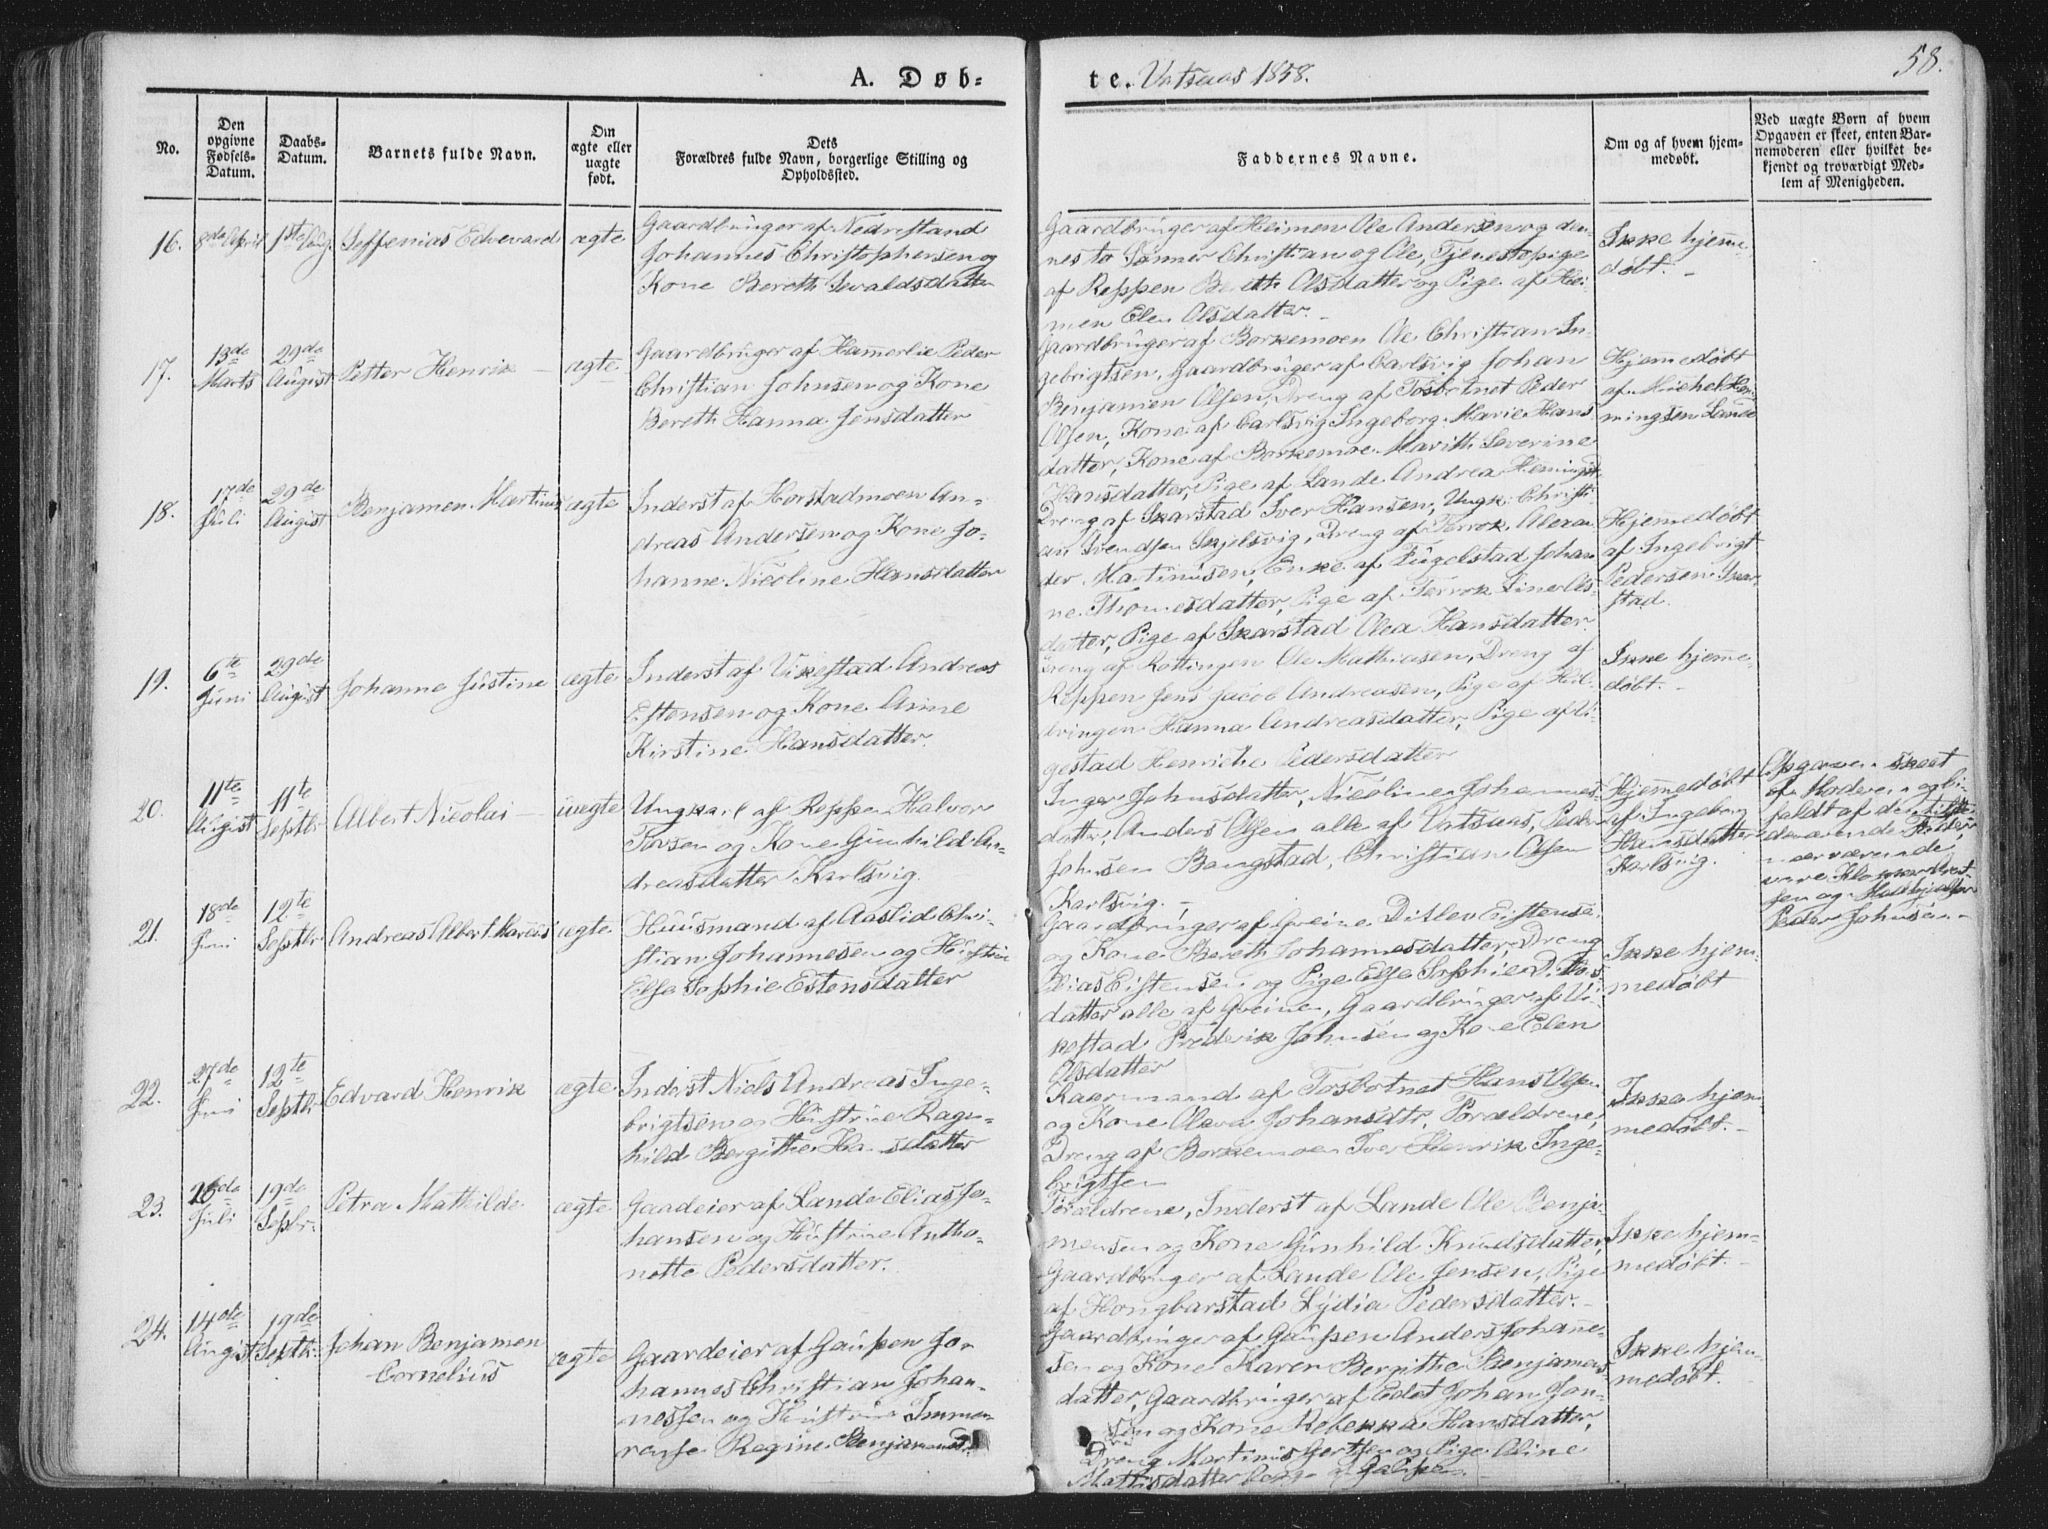 58.
A. Døb-
te. Vatsaas 1858.
No.
Den
opgivne
Fødsels-
Datum.
Daabs-
Datum.
Barnets fulde Navn.
Om
ægte eller
uægte
født.
Dets
Forældres fulde Navn, borgerlige Stilling og
Opholdssted.
Faddernes Navne.
Om og af hvem hjem-
medøbt.
Ved uægte Børn af hvem
Opgaven er skeet, enten Bar-
nemoderen eller hvilket be-
kjendt og troværdigt Med-
lem af Menigheden.
16.
April
1ste Aug.
Edevard
ægte
Gaardbruger af Nedrestand
Johannes Christophersen og
Kone Bereth Sevaldsdatter
Gaardbruger af Heimen Ole Andersen og den-
nes to Sønner Christian og Ole, Tjenestepige
af Reppen Bereth Olsdatter og Pige af Hei-
men Elen Olsdatter.
Ikke hjemme-
døbt.
17.
13de
Marts
29de
August
Petter Henrik
ægte
Gaardbruger af Hamerlie Peder
Christian Johnsen og Kone
Bereth Hanna Jensdatter
Gaardbruger af Borkemoen Ole Christian In-
gebrigtsen, Gaardbruger af Carlsvig Johan
Benjamen Olsen, Dreng af Tosbotnet Peder
Olsen, Kone af Carlsvig Ingeborg Marie Hans-
datter, Kone af Borkemoe Marith Severine
Hansdatter, Pige af Lande Andrea
Hjemmedøbt
af Michel Hen-
ningsen Lande
18.
17de
Juli
29de
August
Benjamen Martinus
ægte
Inderst af Horstadmoen An-
dreas Andersen og Kone Jo-
hanne Nicoline Hansdatter
Dreng af Skarstad Iver Hansen, Ungk. Christi-
an Svendsen Skjelsvig, Dreng af Terrok Alexan
der Martinusen, Enke af Fugelstad Johan
ne Thomesdatter, Pige af Terrok
datter, Pige af Skarstad Olea Hansdatter.
Hjemmedøbt
af Ingebrigt
Pedersen Skar-
stad.
19.
6te
Juni
29de
August
Johanne Justine
ægte
Inderst af Vikestad Andreas
Estensen og Kone Anne
Kirstine Hansdatter.
Dreng af Rottingen Ole Mathiasen, Dreng af
Reppen Jens Jacob Andreasen, Pige af Hil-
bringen Hanna Andreasdatter, Pige af Vi-
gestad Henriche Pedersdatter
Ikke hjemme-
døbt.
20.
11te
August
11te
Septbr
Albert Nicolai
uægte
Ungkarl af Reppen Halvor
og Kone Gunhild An-
dreasdatter Karlsvig.
Inger Johnsdatter, Nicoline Johannes-
datter, Anders Olsen alle af Vatsaas, Peder
Johnsen Bangstad, Christian Olsen
Karlsvig.
Hjemmedøbt
af Ingeborg
Hansdatter
Karlsvig.
Opgaven skeet
af Moderen og bi-
faldt af den
Fader,
nærværende
vare
sen og
Peder Johnsen
21.
18de
Juni
12te
Septbr
Andreas Albert Mareus
ægte
Huusmand af Aaslid Chri-
stian Johannesen og Hustru
Else Sophie Estensdatter
Gaardbruger af Greine Ditlev Eistensen
og Kone Bereth Johannesdatter, Dreng
Elias Eistensen og Pige Else Sophie
datter alle af Greinen, Gaardbruger af Vi-
kestad Frederik Johnsen og Kone Elen
Olsdatter
Ikke hjem-
medøbt
22.
27de
Juni
12te
Septbr
Edvard Henrik
ægte
Inderst Niels Andreas Inge-
brigtsen og Hustrue Ragn-
hild Bergitthe Hansdatter
Kaarmand af Tosbotnet Hans Olsen
og Kone Olava Johansdtr, Forældrene,
Dreng af Borkemoen Iver Henrik Inge-
brigtsen
Ikke hjem-
medøbt.
23.
Juli
19de
Septbr.
Petra Mathilde
ægte
Gaardeier af Lande Elias Jo-
hansen og Hustrue Antho-
nette Pedersdatter.
Forældrene, Inderst af Lande Ole Benja-
mensen og Kone Gunhild Knudsdatter,
Gaardbruger af Lande Ole Jensen, Pige
af Hongbarstad Lydia Pedersdatter.
Ikke hjem-
medøbt.
24.
14de
August
19de
Septbr.
Johan Benjamen
Cornelius
ægte
Gaardeier af Gaupen Jo-
hannes Christian Johan-
nessen og Hustrue Immen-
rense Regine
Gaardbruger af Gaupen Anders Johanne-
sen og Kone Karen Bergitthe Benjamens-
datter, Gaardbruger af Johan Jon-
sen og Kone Rebekka Hansdatter,
Dreng Martinus og Pige Oline
Mathisdatter
Ikke hjem-
medøbt.